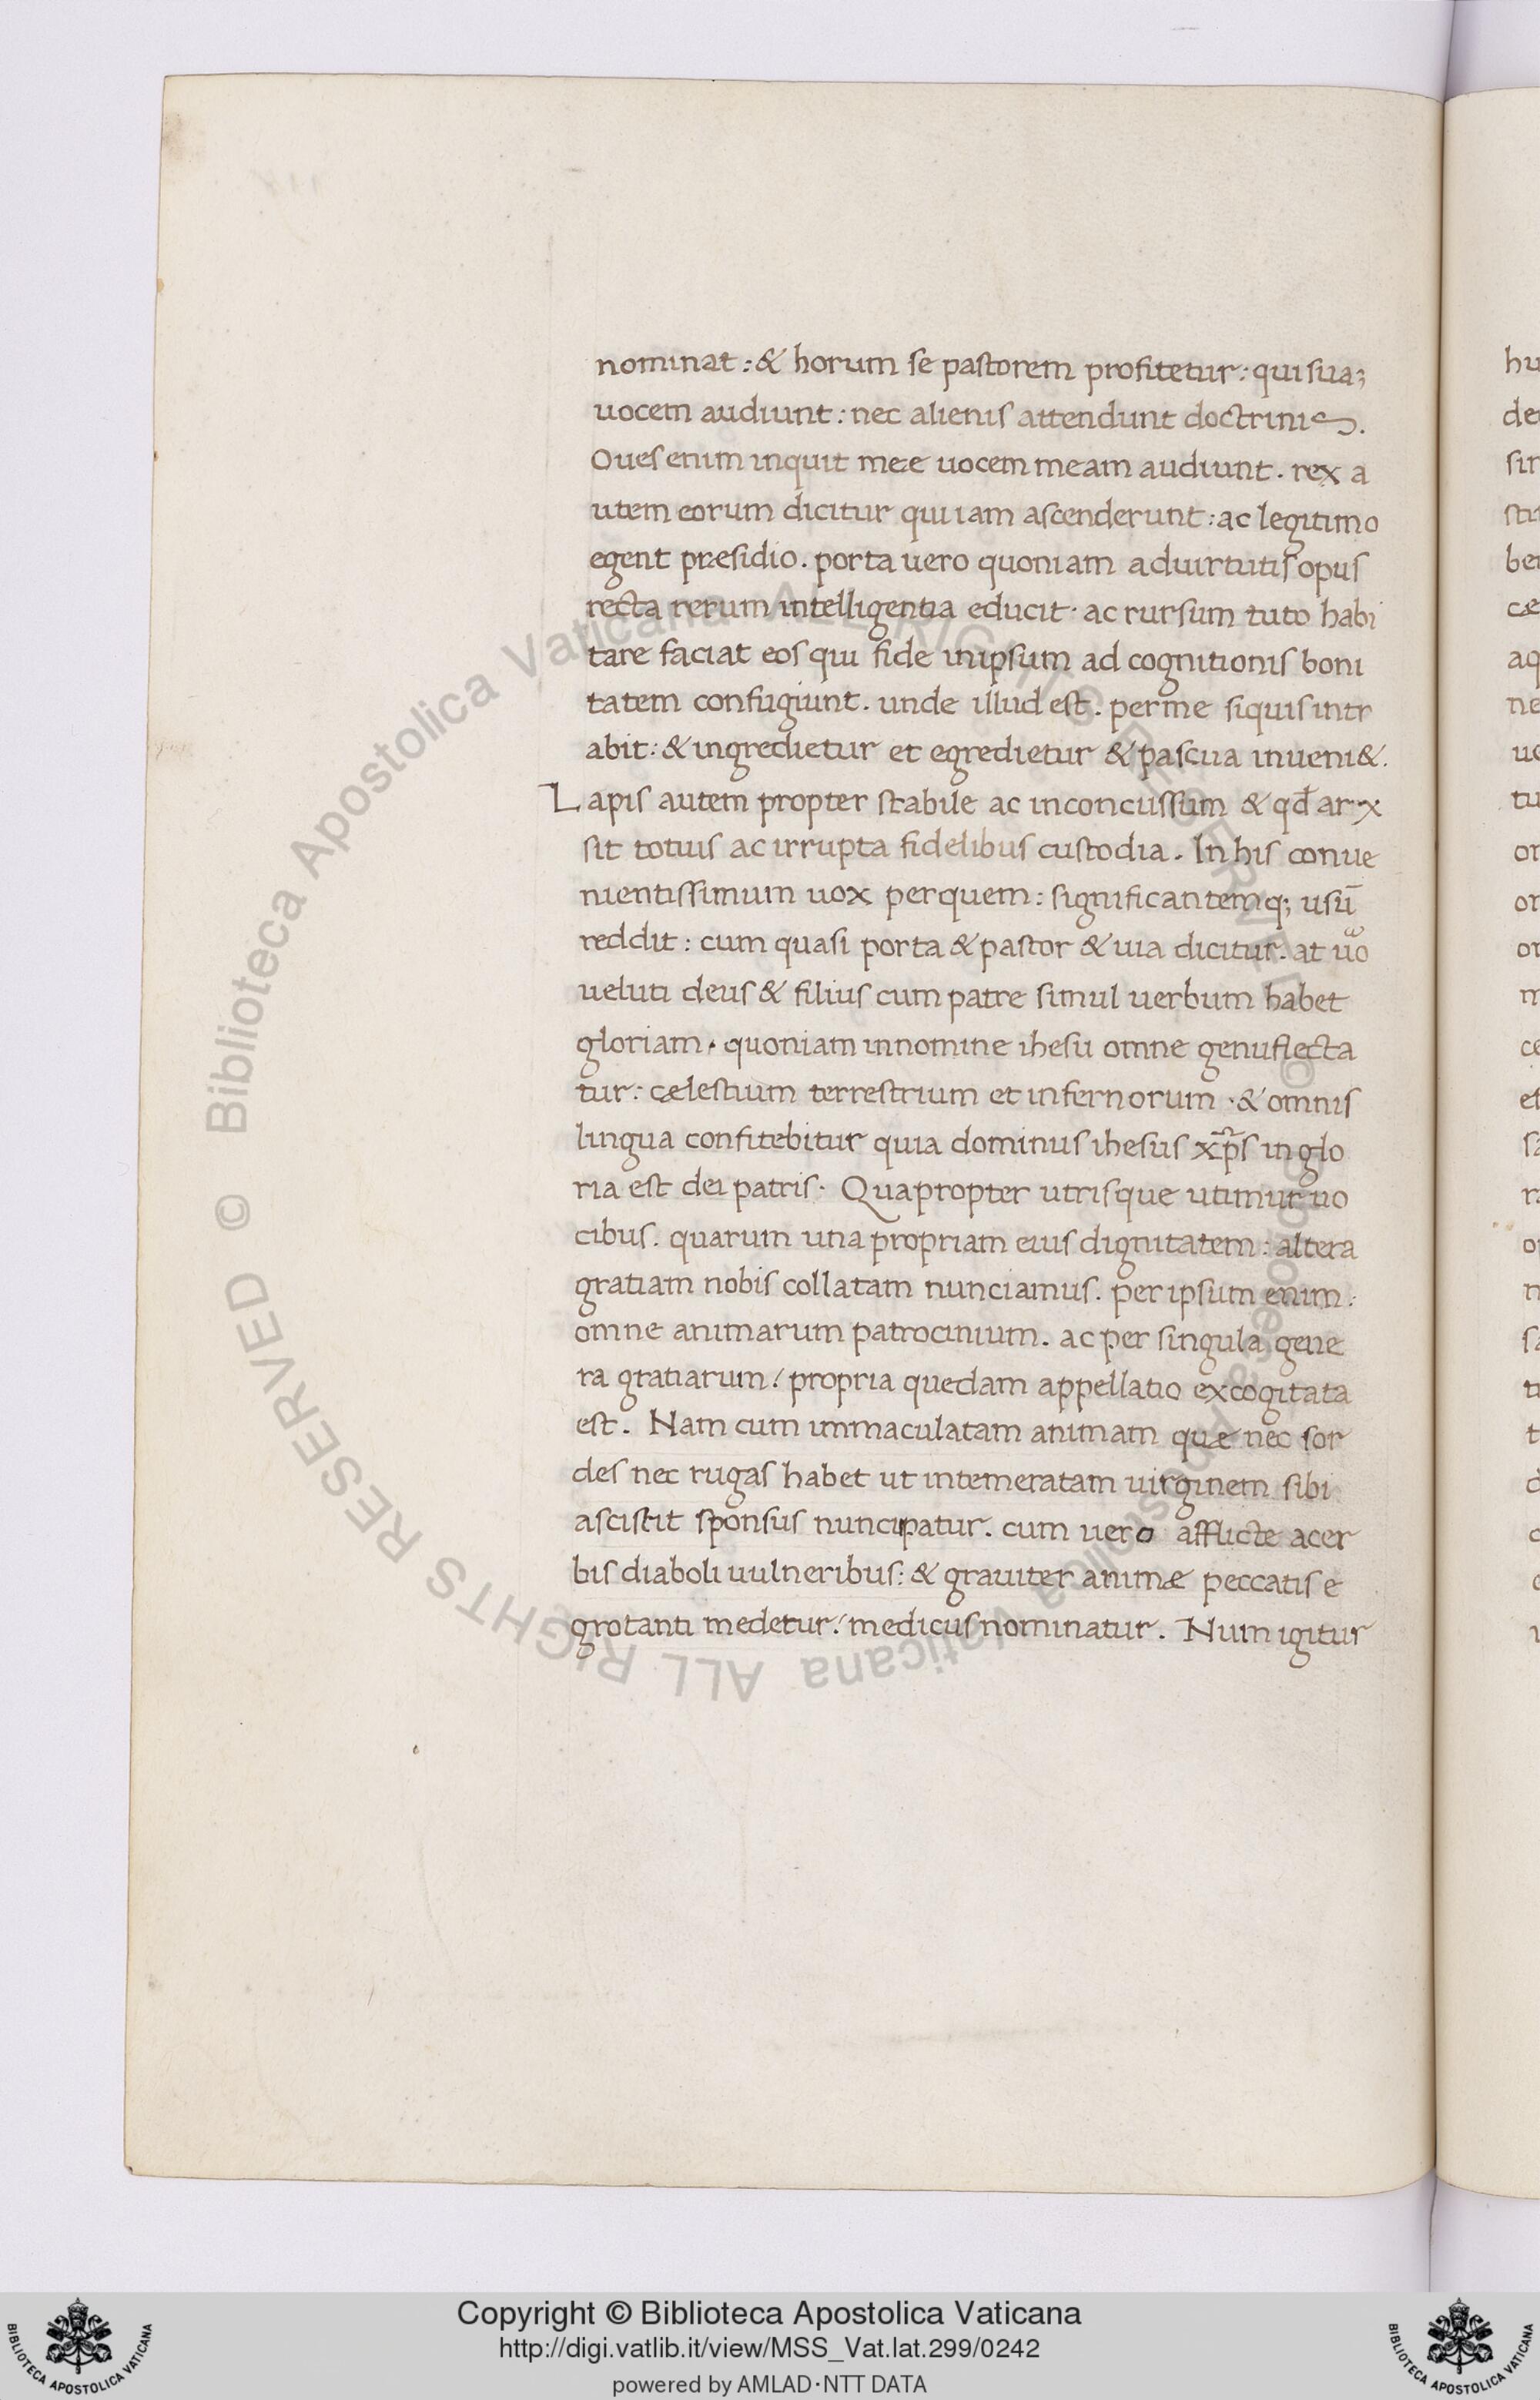 nominat: & horum se pastorem profitetur: qui sua;
uocem audiunt: nec alienis attendunt doctrinis.
Oues enim inquit meæ uocem meam audiunt. rex a
utem eorum dicitur qui iam ascenderunt: ac legitimo
egent præsidio. porta uero quoniam ad uirtutis opus
recta rerum intelligentia educit. ac rursum tuto habi
tare faciat eos qui fide in ipsum ad cognitionis boni
tatem confugiunt. unde illud est. per me siquis intr
abit: & ingredietur et egredietur & pascua inueni&.
Lapis autem propter stabile ac inconcussum & qd̄ arx
sit totius ac irrupta fidelibus custodia. In his conue
nientissimum uox per quem: significantemq; usū
reddit: cum quasi porta & pastor & uia dicitur. at uō
ueluti deus & filius cum patre simul uerbum habet
gloriam. quoniam in nomine ihesu omne genu flecta
tur: cælestium terrestrium et infernorum. & omnis
lingua confitebitur quia dominus ihesus xp̄s in glo
ria est dei patris. Quapropter utrisque utimur uo
cibus. quarum una propriam eius dignitatem: altera
gratiam nobis collatam nunciamus. per ipsum enim:
omne animarum patrocinium. ac per singula gene
ra gratiarum: propria quedam appellatio excogitata
est. Nam cum immaculatam animam quæ nec sor
des nec rugas habet ut intemeratam uirginem sibi
asciscit sponsus nuncipatur. cum uero afflicte acer
bis diaboli uulneribus: & grauiter animæ peccatis e
grotanti medetur: medicus nominatur. Num igitur
© Biblioteca Apostolica Vaticana ALL RIGHTS RESERVED © Biblioteca Apostolica Vaticana ALL RIGHTS RESERVED
Copyright © Biblioteca Apostolica Vaticana
http://digi.vatlib.it/view/MSS_Vat.lat.299/0242
powered by AMLAD·NTT DATA
BIBLIOTECA APOSTOLICA VATICANA
BIBLIOTECA APOSTOLICA VATICANA